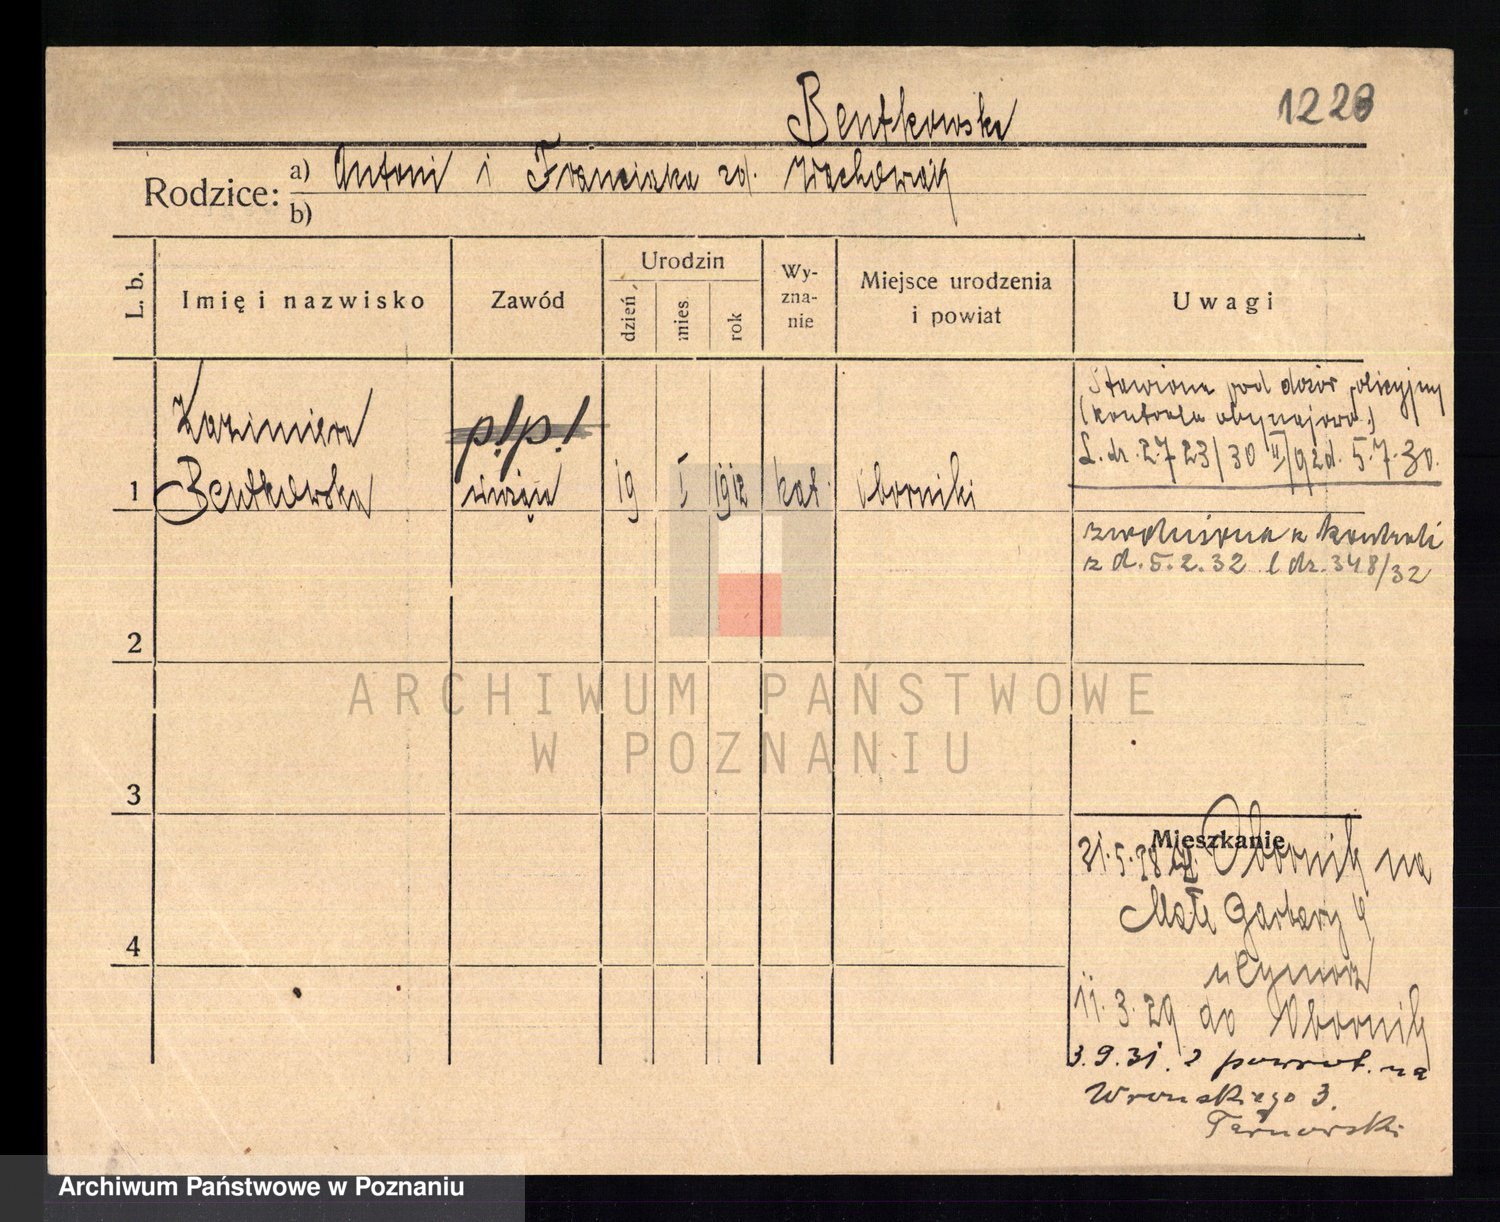 Bentkowska
1228
Rodzice:
a) Antoni i Franciszka zd. Wachowiak
b)
L. b.
Imię i nazwisko
Zawód
Urodzin
dzień
mies.
rok
Wy-
zna-
nie
Miejsce urodzenia
i powiat
Uwagi
1
Kazimiera
Bentkowska
służąca
19
I
1912
kat.
Oborniki
Stawiona pod dozór policyjny
(kontrola obyczajowa)
L. dz. 2723/30 II/9 zd. 5.7.30.
zwolniona z kontroli
z d. 5.2.32 l dz. 348/32
2
3
4
Mieszkanie
21.5.28 z Obornik na
Małe Garbary 4
u Cymorz
11.3.29 do Obornik
3.9.31. z powrot. na
Wronskiego 3.
Tarnowski
ARCHIWUM PAŃSTWOWE
W POZNANIU
Archiwum Państwowe w Poznaniu